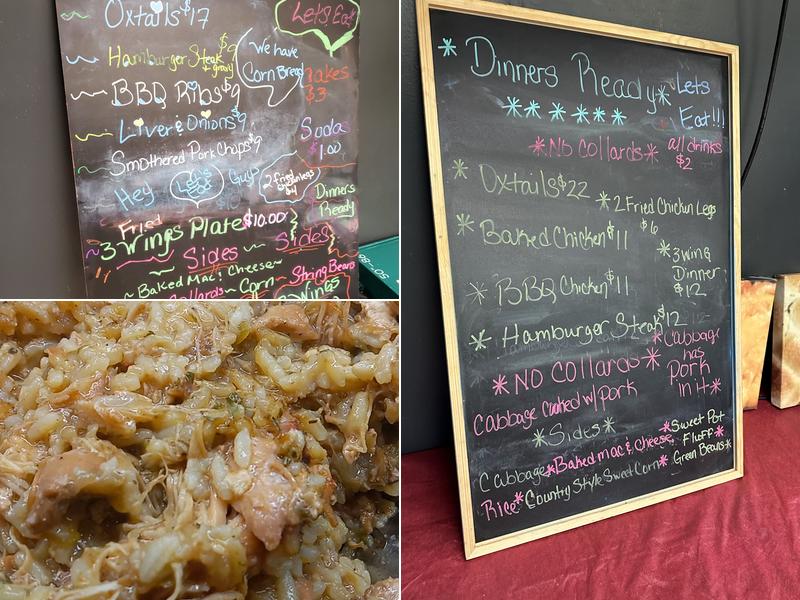 Oxtails $17
Let's Eat
Hamburger Steak $9
+ gravy
We have
Corn Bread
BBQ Ribs $9
Cakes
$3
Liver & Onions $9
Soda
$1.00
Smothered Pork Chops $9
Hey Let's Eat Guys
2 Fried
$4
Dinners
Ready
Fried
3 Wings Plate $10.00
Sides Sides
~Baked Mac! Cheese~
Collards~ Corn~ String Beans
Wings
Dinners Ready
Lets
Eat!!!
*NO Collards*
all drinks
$2
*Oxtails $22
*2 Fried Chicken Legs
$6
*Baked Chicken $11
*3 wing
Dinner
$12
*BBQ Chicken $11
*Hamburger Steak $12
*NO Collards*
*Cabbage
has
Pork
in it*
Cabbage Cooked w/pork
*Sides*
Cabbage *Baked mac & cheese, *Sweet Pot
Fluff*
Rice* Country Style Sweet Corn* Green Beans*